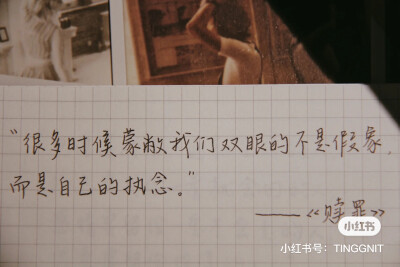 “很多时候蒙敝我们双眼的不是假象，
而是自己的执念。”
——《赎罪》
小红书
小红书号：TINGGNIT